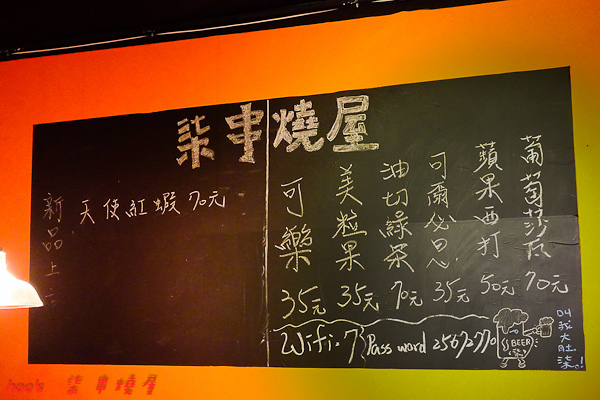 柒串燒屋
新品上
天使紅蝦 70元
可樂 35元
美粒果 35元
油切綠茶 70元
可爾必思 35元
蘋果西打 50元
葡萄莎瓦 70元
Wifi:7
Pass word 25672770
BEER
叫我大肚柒。!
柒串燒屋